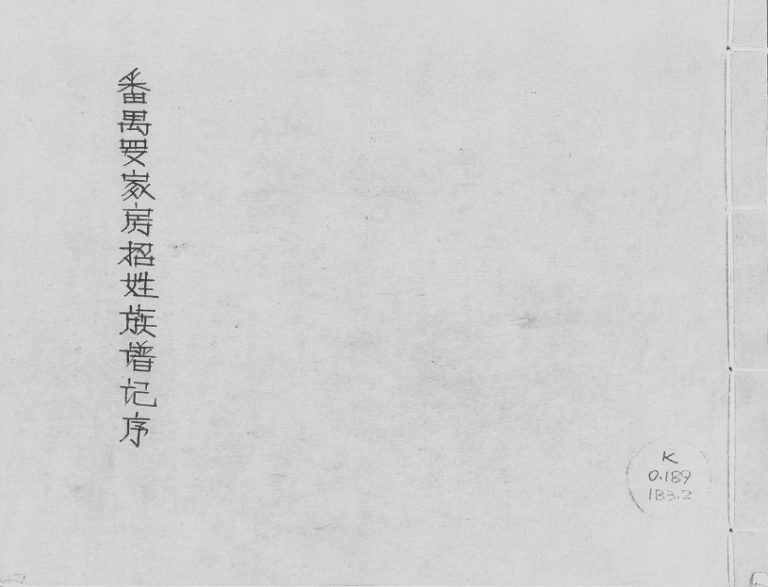 番禺罗家房招姓族谱记序
K
0.189
183.2